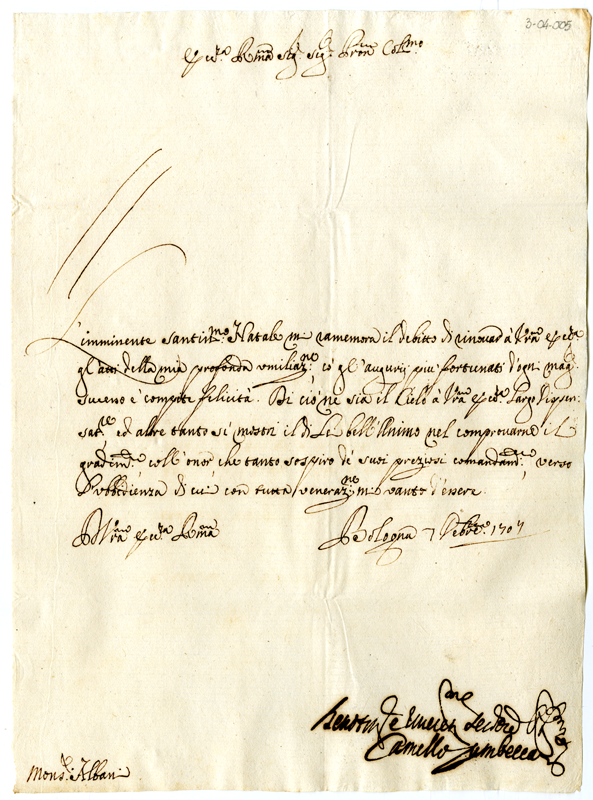 3-04-005
Ecc.za R.ma Sig.r Sig.r Pron Col.mo
L'imminente Santiss.mo Natale mi ramemora il debitto di rinovar à V.ra Ecc.za
gl'atti della mia profonda umiliaz.ne có gl'augurij piu fortunati d'ogni mag.r
sereno e compite felicità. Di ció ne sia il Cielo à V.ra Ecc.za Largo Dispen:
sat.re ed altre tanto si mostri il di Lei bell'Animo nel comprovarne il
gradim.to coll'onor che tanto sospiro de suoi preziosi comandam.ti verso
l'ubbidienza di cui con tutta veneraz.ne mi vanto d'essere.
D V.ra Ecc.za R.ma
Bologna 7 Xbre 1707
Camillo Zambeccari
Mons.r Albani